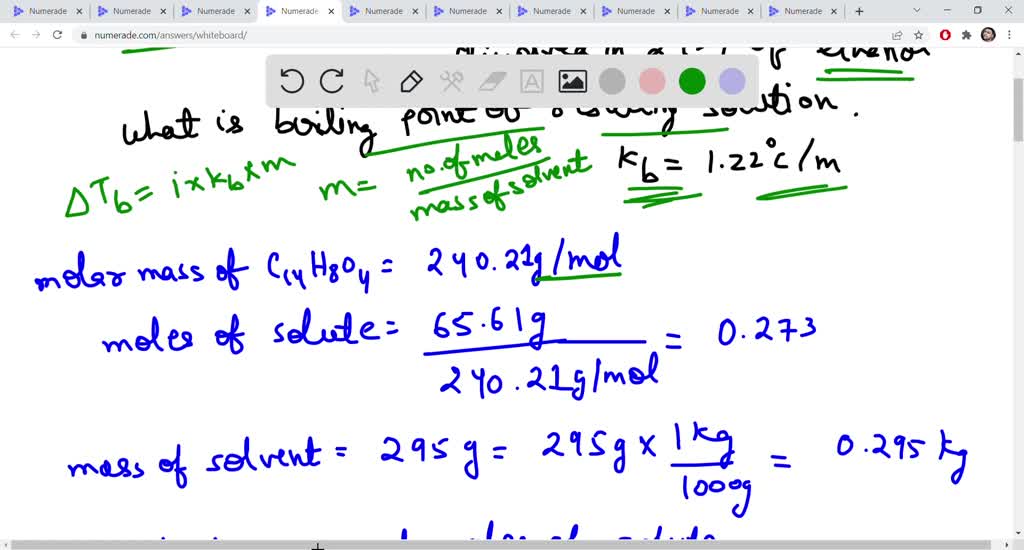 Numerade Numerade Numerade Numerade Numerade Numerade Numerade Numerade Numerade Numerade
numerade.com/answers/whiteboard/
ethanol
A
what is boiling point of solution.
ΔTb = i×kb×m m = no. of moles / mass of solvent kb = 1.22°c/m
molar mass of C14H8O4 = 240.21g/mol
moles of solute = 65.61g / 240.21g/mol = 0.273
mass of solvent = 295g = 295g × 1kg / 1000g = 0.295 kg